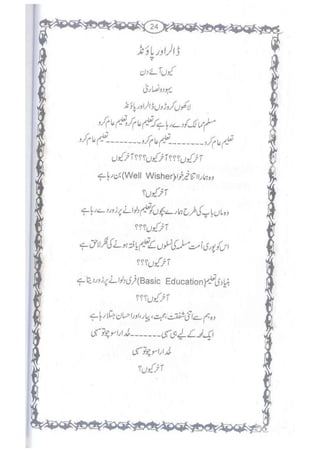 24
ڈالر اور پاؤنڈ
کیوں آئے دن
یہود و نصاریٰ
لاکھوں کروڑوں ڈالر اور پاؤنڈ
مسلم ممالک کو دے رہا ہے کہ تعلیم عام کرو تعلیم عام کرو
تعلیم عام کرو۔۔۔۔۔۔۔۔تعلیم عام کرو۔۔۔۔۔۔۔۔تعلیم عام کرو
آخر کیوں؟؟؟؟آخر کیوں؟؟؟آخر کیوں
وہ ہمارا اتنا خیر خواہ (Well Wisher) بن رہا ہے
آخر کیوں؟
وہ ماں باپ کی طرح ہمارے بچوں کو تعلیم دلوانے پر زور دے رہا ہے
آخر کیوں؟؟؟
اس کو پوری امت مسلمہ کی نسلوں کے تعلیم یافتہ ہونے کی فکر لاحق ہے
آخر کیوں؟؟؟
بنیادی تعلیم (Basic Education) فری دلوانے پر زور دیتا ہے
آخر کیوں؟؟؟
وہ ہم سے اتنی شفقت، محبت، پیار، اور احسان جتلا رہا ہے
ایک لمحہ کے لیے ہی سہی۔۔۔۔۔۔۔خدارا سوچو تو سہی
خدارا سوچو تو سہی
آخر کیوں؟